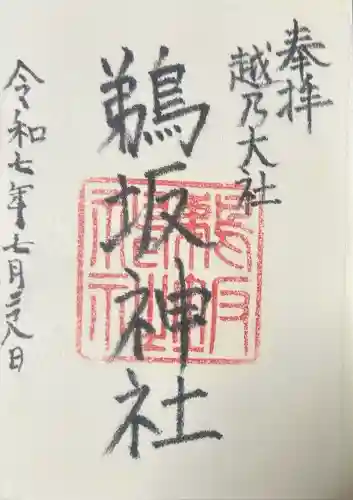 奉拝
越乃大社
鵜坂神社
令和七年七月二八日